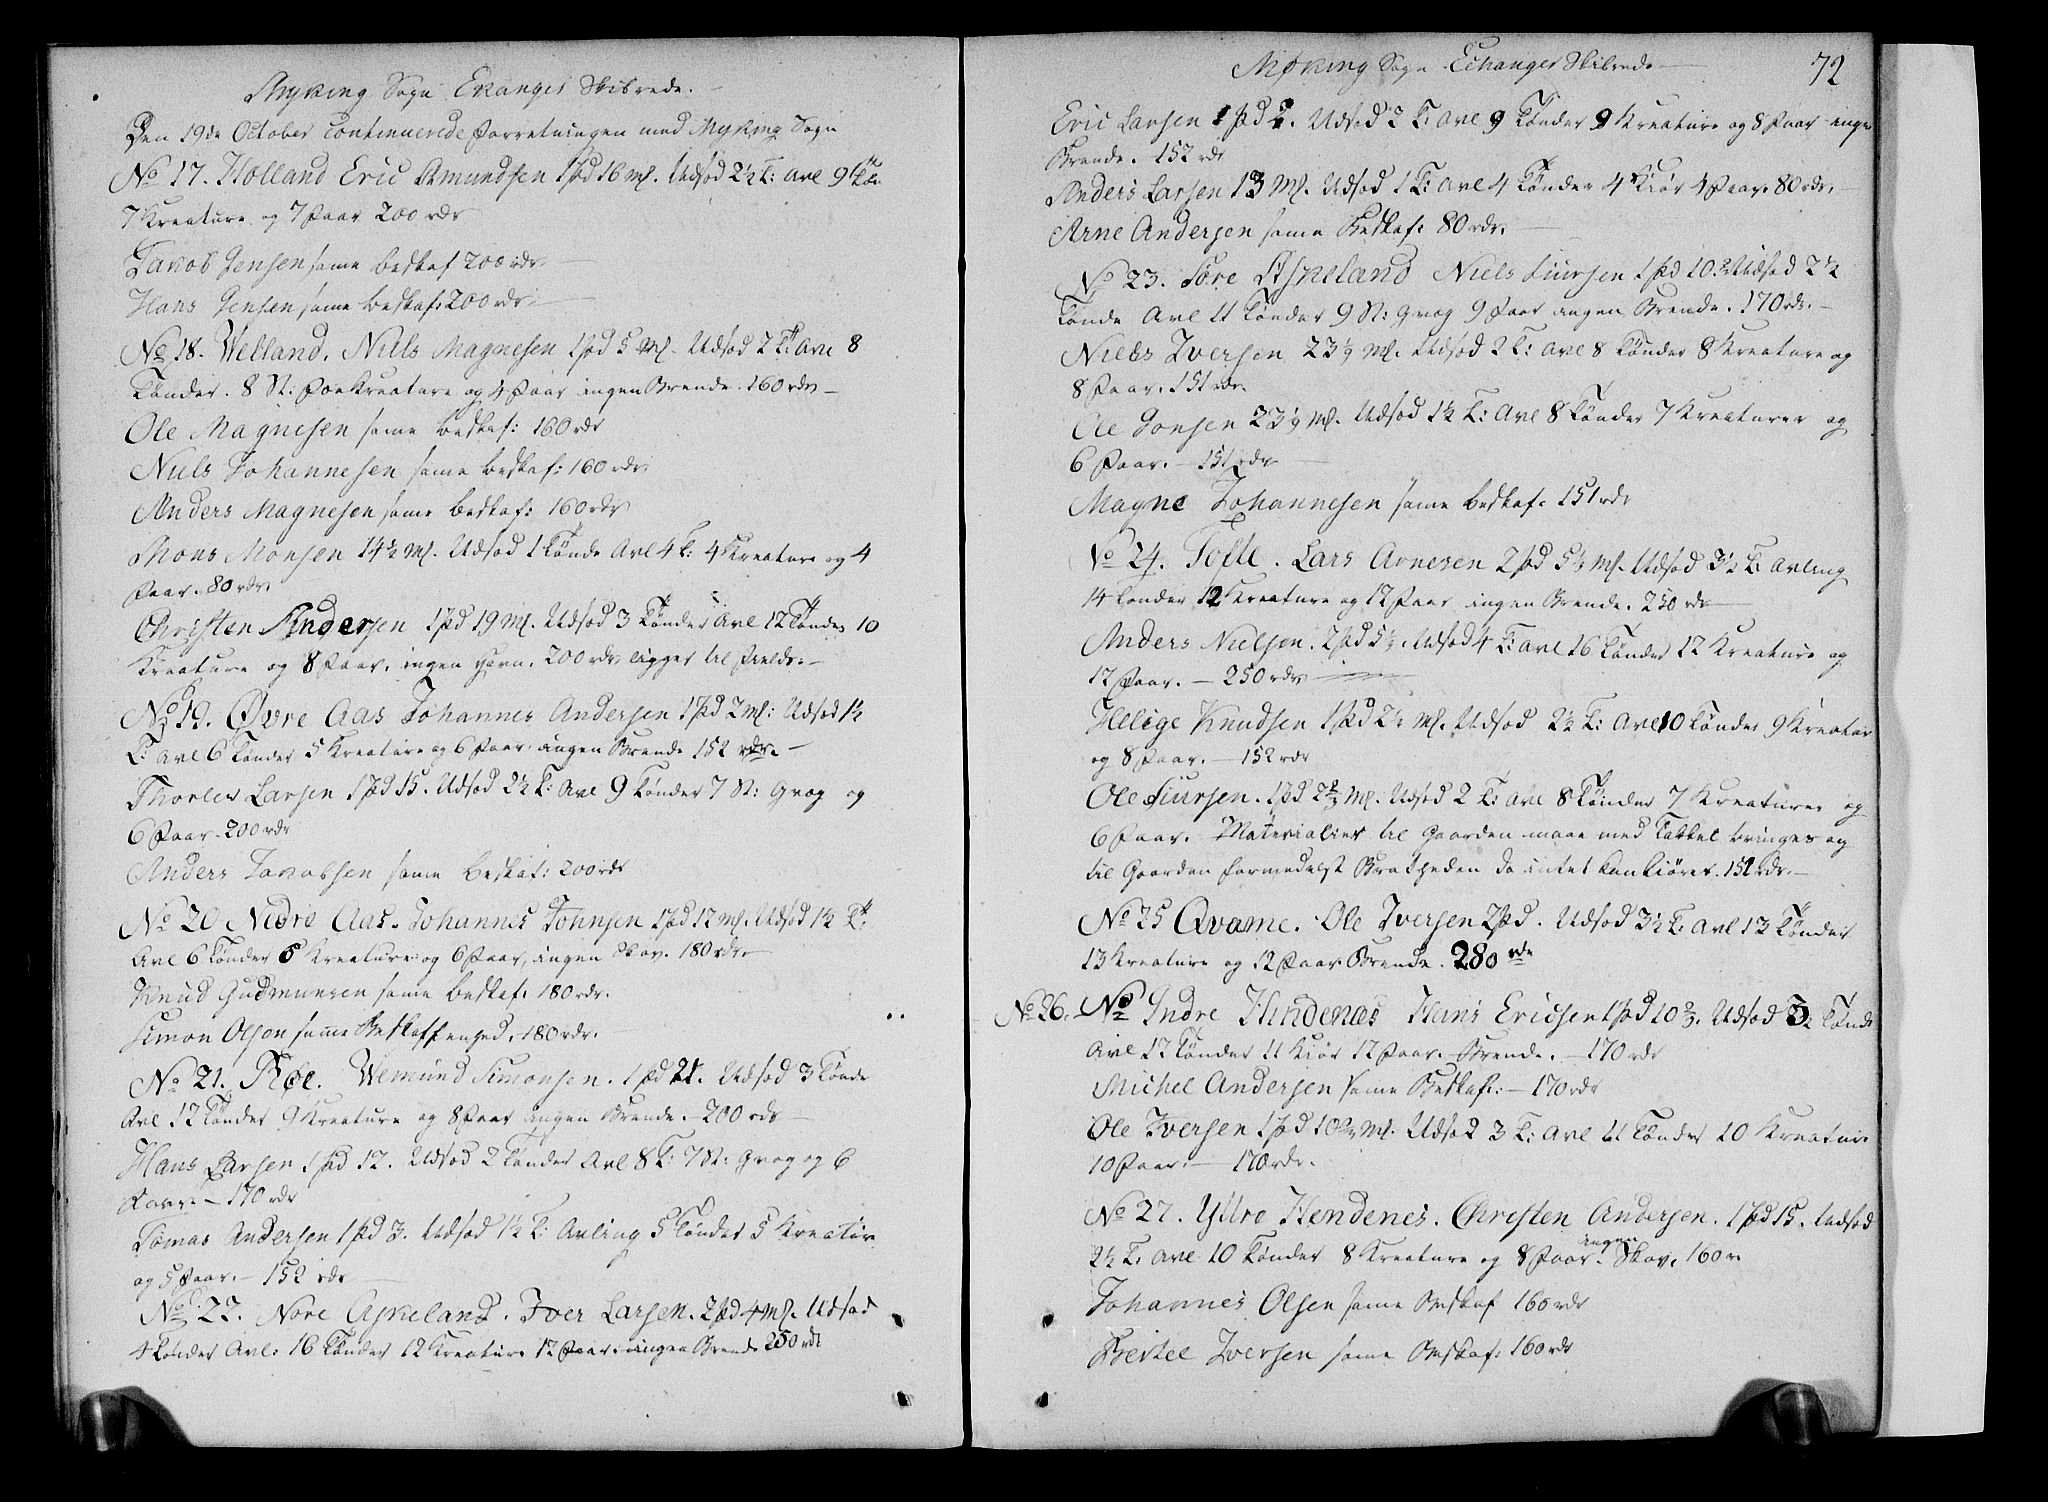 Myking Sogn Ekanger Skibrede.
Den 19de October continuerede Forretningen med Myking Sogn
No 17. Holland Eric Amundsen 1 Pd 16 Ml. Udsød 2½ T: Avl 9 Tdr
7 Kreature og 7 Faar 200 rdr
Jakob Jensen same Beskaf 200 rdr
Hans Jensen same Beskaf: 200 rdr
No 18. Welland. Niels Magnesen 1 Pd 5 Ml. Udsød 2 T: Avl 8
Tønder. 8 St: Foe Kreature og 4 Faar ingen Brende. 160 rdr
Ole Magnesen same Beskaf: 160 rdr
Niels Johannesen same Beskaf: 160 rdr
Anders Magnesen same Beskaf: 160 rdr
Mons Monsen 14½ Ml. Udsød 1 Tønde Avl 4 T: 4 Kreature og 4
Faar. 80 rdr.
Christen Andersen 1 Pd 19 Ml. Udsød 3 Tønder Avl 12 Tønder 10
Kreature og 8 Faar. ingen Havn. 200 rdr ligger til Fields.
No 19. Øvre Aas Johannes Andersen 1 Pd 2 Ml: Udsød 1½
T: Avl 6 Tønder 5 Kreature og 6 Faar ingen Brende 152 rdr.
Thorlev Larsen 1 Pd 15. Udsød 2½ T: Avl 9 Tønder 7 St: Qvæg og
6 Faar. 200 rdr
Anders Jakobsen same Beskaf: 200 rdr
No 20 Nedre Aas. Johannes Johnsen 1 Pd 12 Ml. Udsød 1½ T:
Avl 6 Tønder 5 Kreature og 6 Faar, ingen Skov. 180 rdr.
Knud Gudmunsen same Beskaf: 180 rdr.
Simon Olsen same Beskaffenged. 180 rdr.
No 21. Røe. Wemund Simonsen. 1 Pd 21. Udsød 3 Tønde
Avl 12 Tønder 9 Kreature og 8 Faar ingen Brende. 200 rdr
Hans Larsen 1 Pd 12. Udsød 2 Tønder Avl 8 T: 7 St: Qvæg og 6
Faar. 170 rdr
Tomas Andersen 1 Pd 3. Udsød 1½ T: Avling 5 Tønder 5 Kreatur
og 5 Faar. 152 rdr
No. 22. Nore Askeland. Iver Larsen. 2 Pd 4 Ml. Udsød
4 Tønder Avl: 16 Tønder 12 Kreature 12 Faar. ingen Brende 250 rdr
Myking Sogn Echanger Skibrede 72
Eric Larsen 1 Pd 2. Udsød 2 T: Avl 9 Tønder 9 Kreature og 8 Faar ingen
Brende. 152 rdr
Anders Larsen 13 Ml. Udsød 1 T: Avl 4 Tønder 4 Kiør 4 Faar. 80 rdr.
Arne Andersen same Beskaf: 80 rdr.
No 23. Søre Askeland Niels Siursen 1 Pd 10⅔ Udsød 2½
Tønde Avl 11 Tønder 9 St: Qvæg 9 Faar ingen Brende. 170 rdr.
Niels Iversen 23½ Ml. Udsød 2 T: Avl 8 Tønder 8 Kreature og
8 Faar. 151 rdr.
Ole Jonsen 23½ Ml. Udsød 1½ T: Avl 8 Tønder 7 Kreaturer og
6 Faar. 151 rdr
Magne Johannesen same Beskaf. 151 rdr
No 24. Tofte. Lars Arnesen 2 Pd 5½ Ml. Udsød 3½ T: Avling
14 Tønder 12 Kreature og 12 Faar ingen Brende. 250 rdr
Anders Nielsen. 2 Pd 5½. Udsød 4 T: Avl 16 Tønder 12 Kreature og
12 Faar. 250 rdr
Helige Knudsen 1 Pd 2½ Ml. Udsød 2½ T: Avl 10 Tønder 9 Kreatur
og 8 Faar. 152 rdr
Ole Siursen. 1 Pd 2⅔ Ml. Udsød 2 T: Avl 8 Tønder 7 Kreaturer og
6 Faar. Materialier til Gaarden maae med Takkel bringes og
til Gaarden formedelst Bratheden da intet kan kiøres. 152 rdr.
No 25 Qvame. Ole Iversen 2 Pd. Udsød 3½ T: Avl 13 Tønder
13 Kreature og 12 Faar Brende. 280 rdr
No 26. No Indre Hindenæs Hans Ericsen 1 Pd 10⅔. Udsød 3 Tønde
Avl 12 Tønder 11 Kiør 12 Faar. Brende. 170 rdr
Michel Andersen same Beskaf: 170 rdr
Ole Iversen 1 Pd 10⅔ Ml. Udsød 3 T: Avl 11 Tønder 10 Kreatur
10 Faar. 170 rdr.
No 27. Yttre Hendenes. Christen Andersen. 1 Pd 15. Udsød
2½ T: Avl 10 Tønder 8 Kreature og 8 Faar. ingen Skov. 160 r
Johannes Olsen same Beskaf 160 rdr
Bertel Iversen same Beskaf: 160 rdr